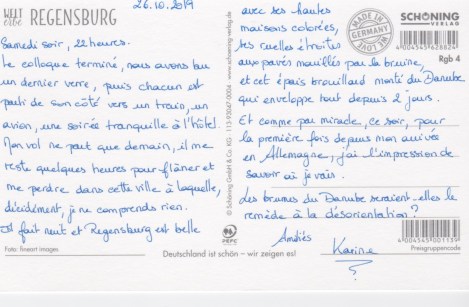 WELT
erbe REGENSBURG
26.10.2019
Samedi soir, 22 heures.
Le colloque terminé, nous avons bu
un dernier verre, puis chacun est
parti de son côté vers un train, un
avion, une soirée tranquille à l'hôtel.
Mon vol ne part que demain, il me
reste quelques heures pour flâner et
me perdre dans cette ville à laquelle,
décidément, je ne comprends rien.
Il fait nuit et Regensburg est belle
Foto: fineart images
© Schöning GmbH & Co. KG
www.schoening-verlag.de
PEFC
Deutschland ist schön – wir zeigen es!
avec ses hautes
maisons colorées,
ses ruelles étroites
aux pavés mouillés par la bruine,
et cet épais brouillard monté du Danube
qui enveloppe tout depuis 2 jours.
Et comme par miracle, ce soir, pour
la première fois depuis mon arrivée
en Allemagne, j'ai l'impression de
savoir où je vais.
Les brumes du Danube seraient-elles le
remède à la désorientation ?
Amitiés
Karine
MADE IN
GERMANY
WE LOVE
SCHÖNING
VERLAG
4 004545 628824
Rgb 4
4 004545 001139
Preisgruppencode